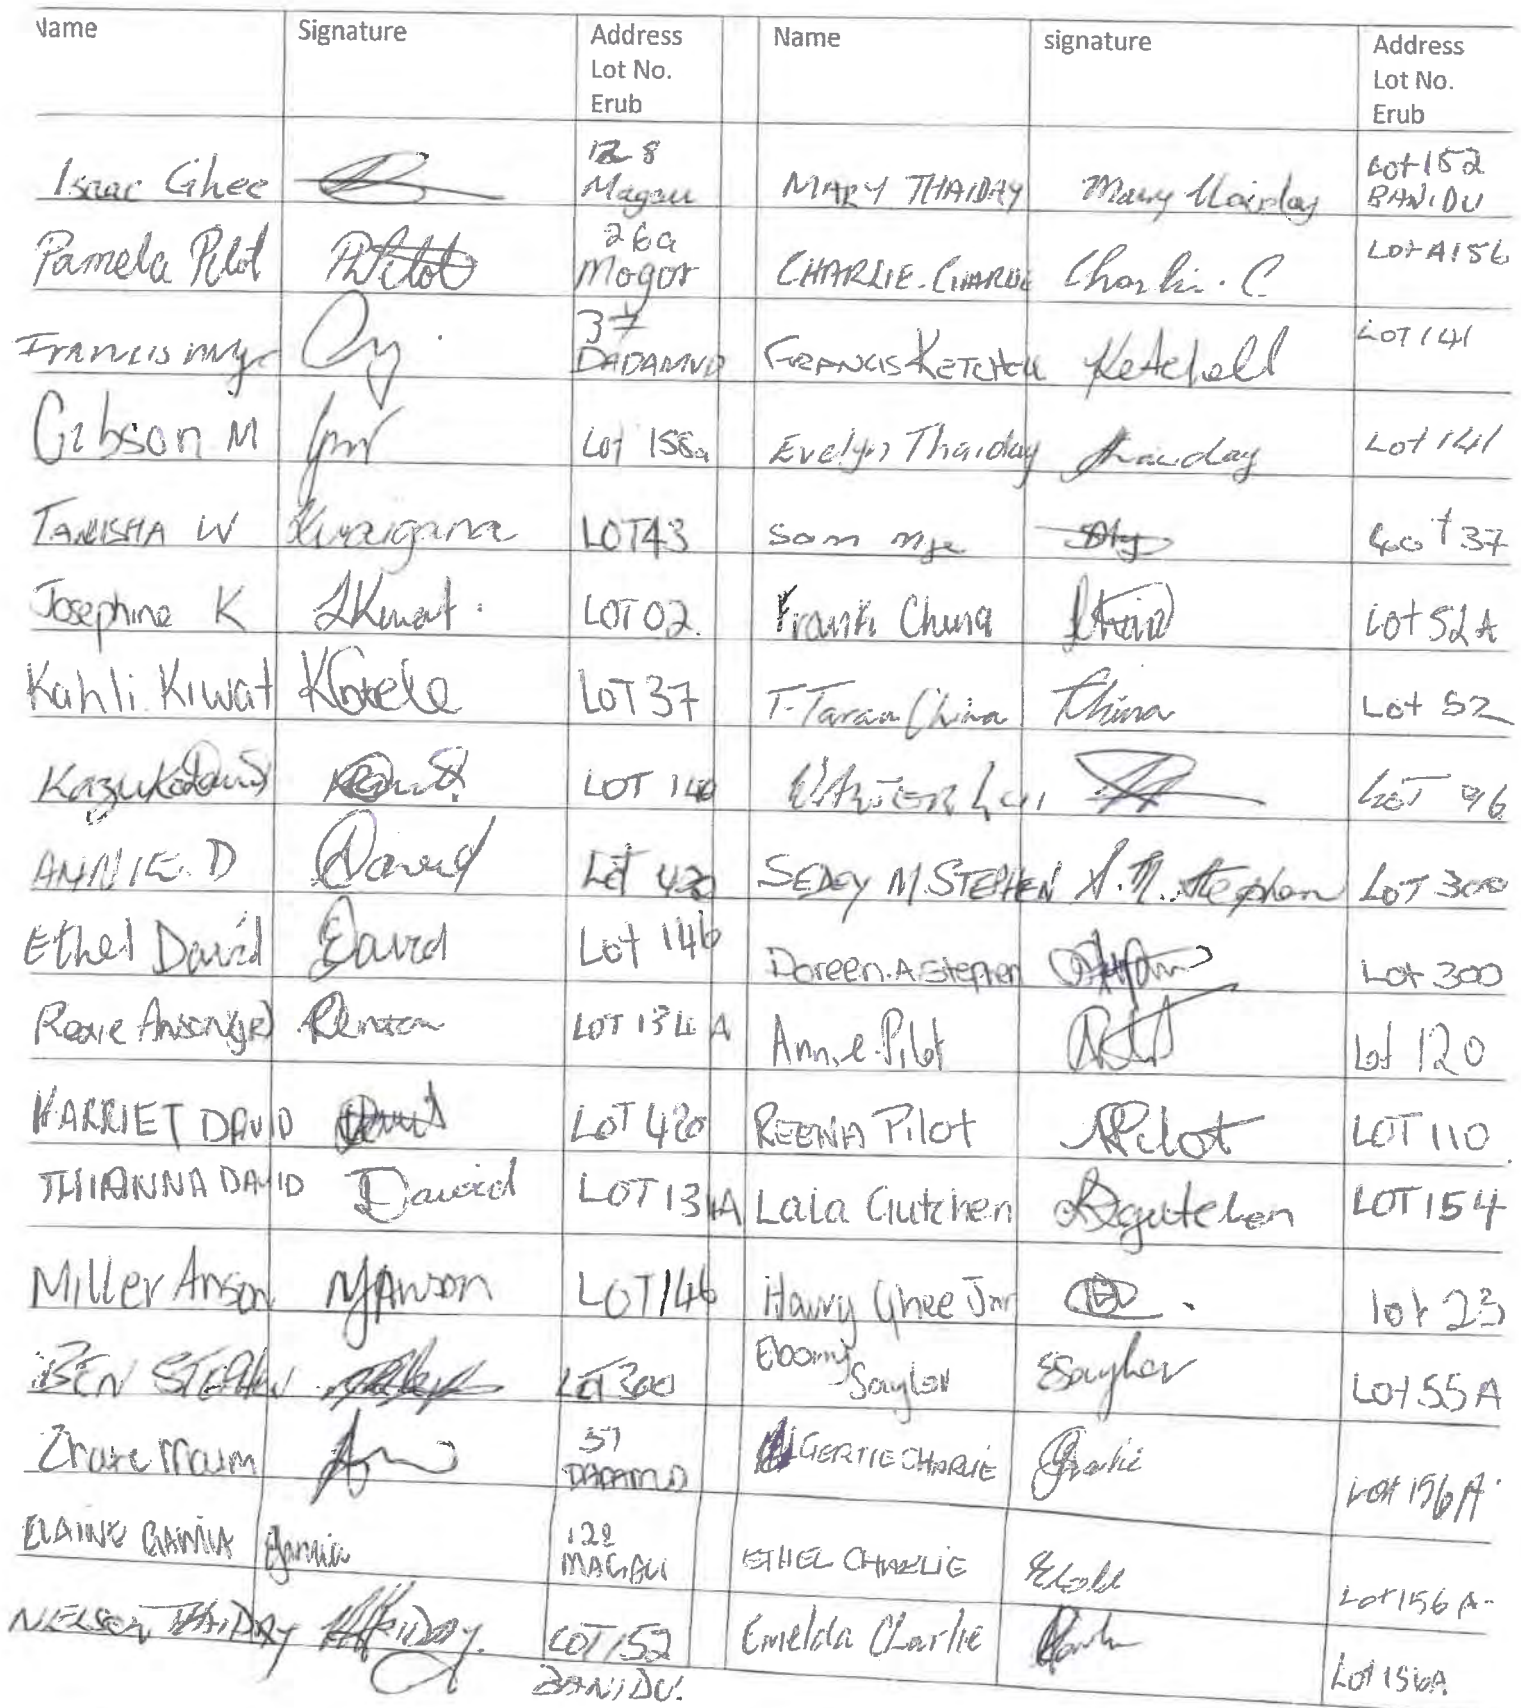 Name Signature Address Name signature Address
Lot No. Lot No.
Erub Erub
Isaac Ghee 128 MARY THAIDAY Mary Thaiday Lot 152
Magau BANIDU
Pamela Pilot PPilot 26a CHARLIE. CHARLIE Charlie. C. Lot A156
Mogor
Francis 37 FRANCIS KETCHELL Ketchell LOT 141
DADAMUD
Gibson M Lot 155a Evelyn Thaiday Thaiday Lot 141
TANISHA W LOT43 Sam Lot 37
Josephine K Kiwat. LOT 02. Frank China Lot 52A
Kahli. Kiwat LOT 37 T-Taran China China Lot 52
LOT 140 WALTER Lui LOT 96
ANNIE. D David Lot 420 SEDEY M STEPHEN S. M. Stephen LOT 300
Ethel David David Lot 146 Doreen. A. Stephen Lot 300
LOT 134 A Annie. Pilot Lot 120
HARRIET DAVID David LOT 420 REENA Pilot RPilot LOT 110
THIANNA DAVID David LOT 134A Lala Gutchen Gutchen LOT 154
Miller Anson MAnson LOT 146 Harry Ghee Jnr lot 23
BEN STEPHEN LOT 300 Ebony ESaylor Lot 55A
Saylor
37 GERTIE CHARLIE Charlie Lot 156A.
DADAMUD
ELAINE GAMIA Gamia 128 ETHEL CHARLIE Lot 156A.
MAGAU
NELSON THAIDAY THAIDAY. LOT 152 Emelda Charlie Lot 156A
BANIDU.